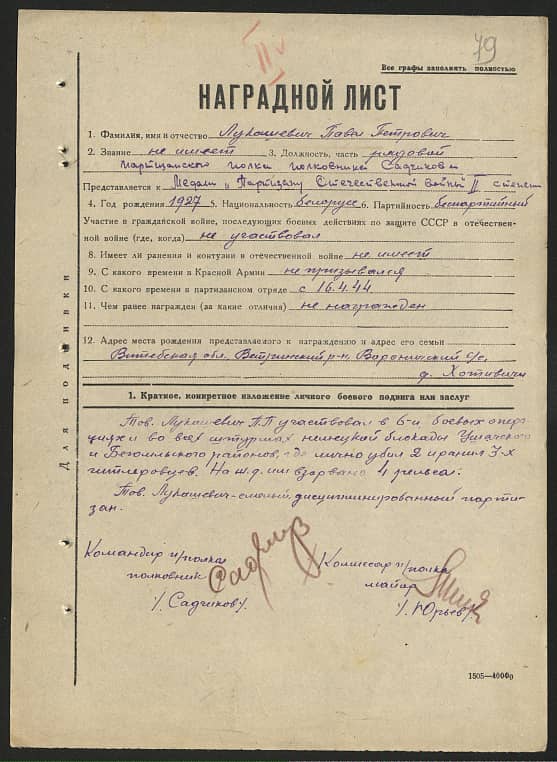 79
II
Все графы заполнять полностью
НАГРАДНОЙ ЛИСТ
1. Фамилия, имя и отчество Лукашевич Павел Петрович
2. Звание не имеет 3. Должность, часть рядовой
партизанского полка полковника Садчикова
Представляется к Медали „Партизану Отечественной войны" II степени
4. Год рождения 1927 5. Национальность белорусс 6. Партийность беспартийный
Участие в гражданской войне, последующих боевых действиях по защите СССР в отечествен-
ной войне (где, когда) не участвовал
8. Имеет ли ранения и контузии в отечественной войне не имеет
9. С какого времени в Красной Армии не призывался
10. С какого времени в партизанском отряде с 16.4.44
11. Чем ранее награжден (за какие отличия) не награжден
12. Адрес места рождения представляемого к награждению и адрес его семьи
Витебская обл., Ветринский р-н, Воронический с/с,
д. Хотевичи
1. Краткое, конкретное изложение личного боевого подвига или заслуг
Тов. Лукашевич П.П. участвовал в 6-и боевых опера-
циях и во всех штурмах немецкой блокады Ушачского
и Бегомльского районов, где лично убил 2 и ранил 3-х
гитлеровцев. На ж.д. им взорвано 4 рельса.
Тов. Лукашевич-смелый, дисциплинированный парти-
зан.
Командир п/полка
полковник
/Садчиков/.
Комиссар п/полка
майор
/Юрьев/.
Для подшивки
1505—40000